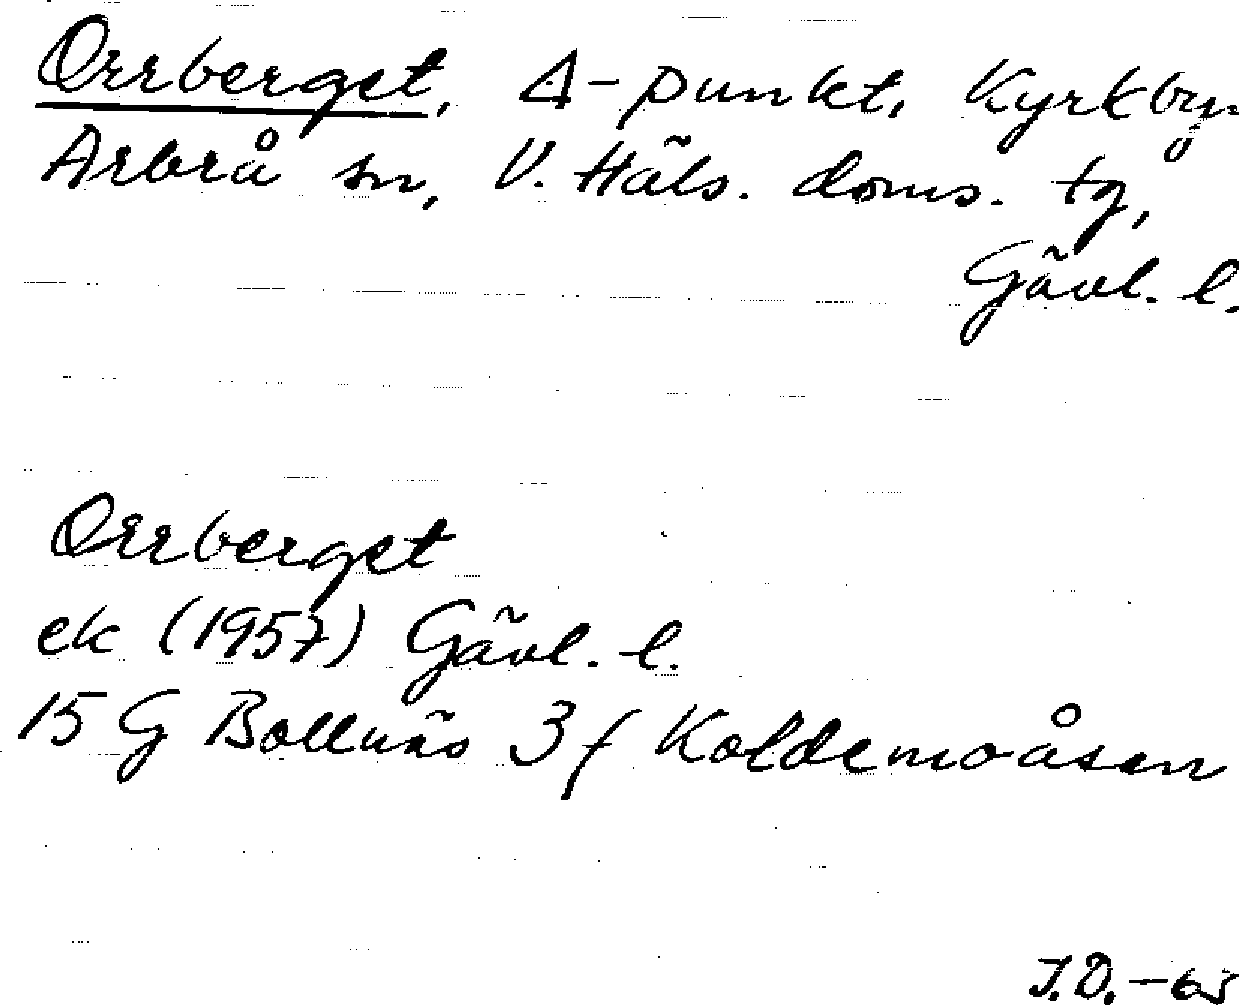 Orrberget, Δ-punkt, Kyrkbyn
Arbrå sn, V. Häls. doms. tg,
Gävl. l.
Orrberget
ek (1957) Gävl. l.
15 G Bollnäs 3 f Koldemoåsen
J.D. -63